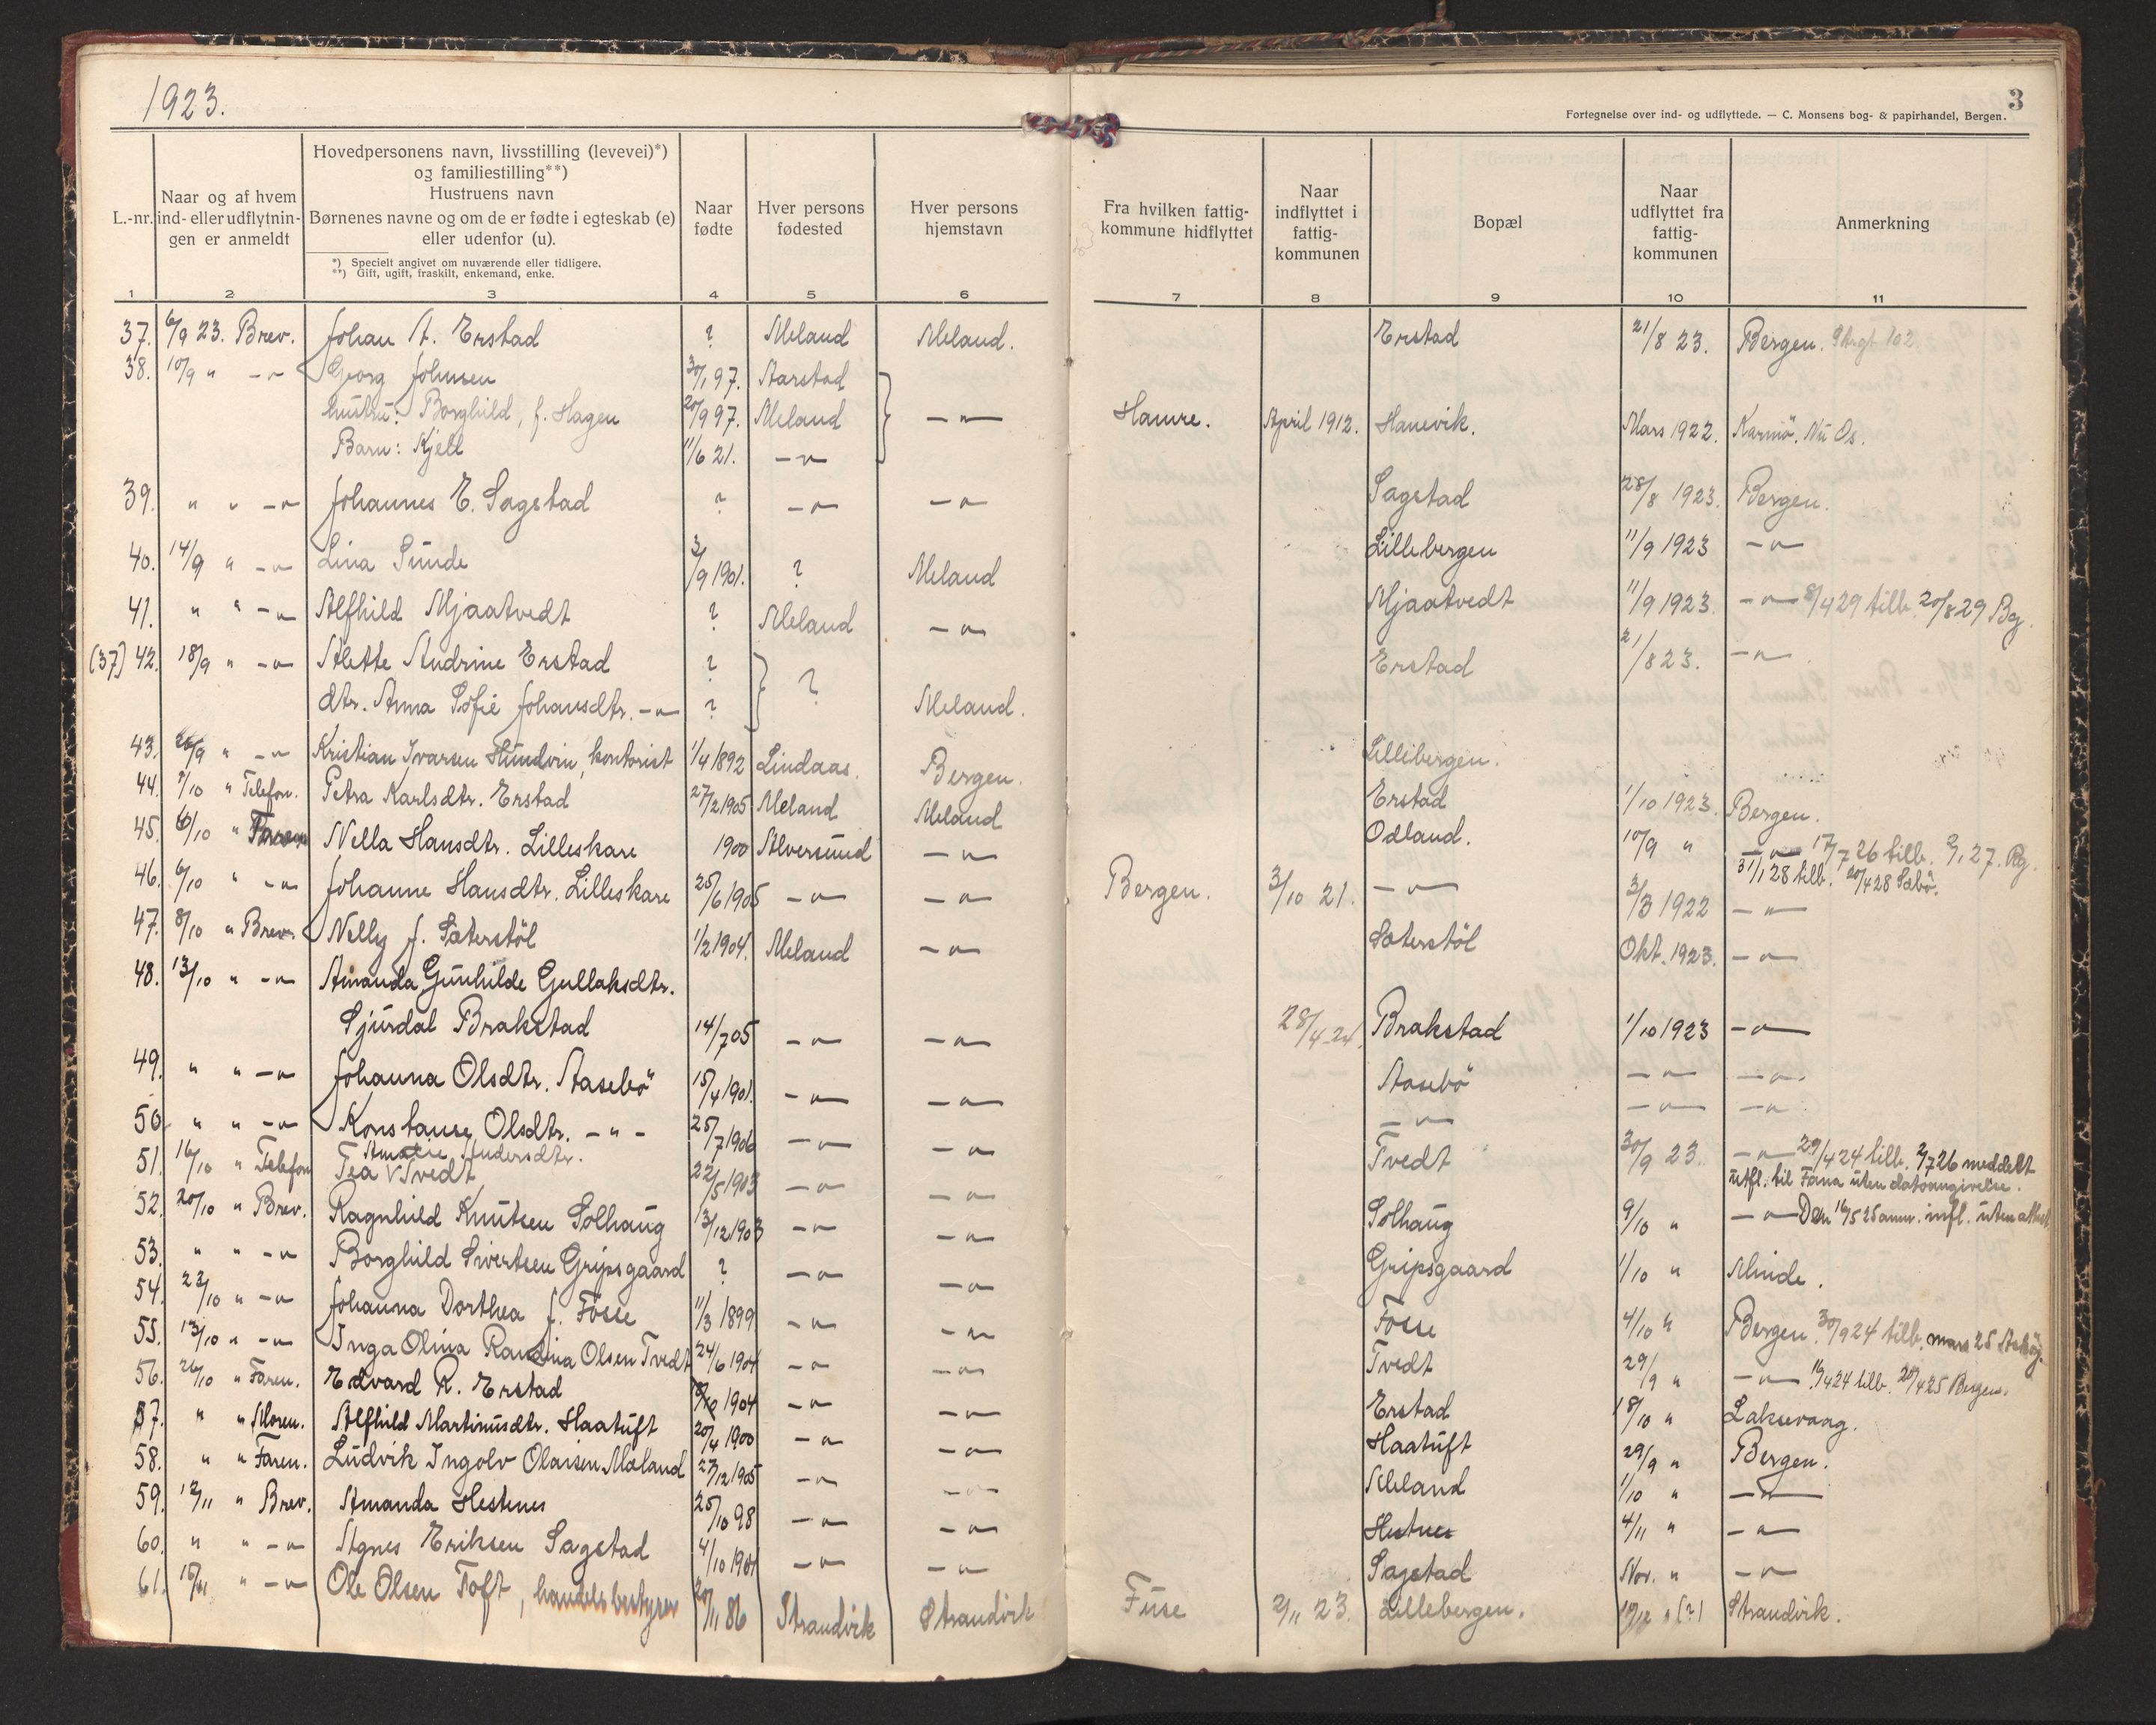 1923.
3
Fortegnelse over ind- og udflyttede. — C. Monsens bog- & papirhandel, Bergen.
L.-nr.
Naar og af hvem ind- eller udflytningen er anmeldt
Hovedpersonens navn, livsstilling (levevei)*)
og familiestilling**)
Hustruens navn
Børnenes navne og om de er fødte i egteskab (e)
eller udenfor (u).
*) Specielt angivet om nuværende eller tidligere.
**) Gift, ugift, fraskilt, enkemand, enke.
Naar fødte
Hver persons fødested
Hver persons hjemstavn
Fra hvilken fattig-kommune hidflyttet
Naar indflyttet i fattig-kommunen
Bopæl
Naar udflyttet fra fattig-kommunen
Anmerkning
1 2 3 4 5 6 7 8 9 10 11
37. 6/9 23. Brev. Johan A. Erstad ? Meland Meland. Erstad 21/8 23. Bergen.
38. 10/9 " -"- Georg Johnsen 30/1 97. Aarstad
hustru: Borghild, f. Hagen 20/9 97. Meland -"- Hamre. April 1912. Hanevik. Mars 1922. Karmö. Nu Os.
Barn: Kjell 11/6 21. -"-
39. " " -"- Johannes E. Sagstad ? -"- -"- Sagstad 28/8 1923. Bergen.
40. 14/9 " -"- Lina Sunde 3/9 1901. ? Meland Lillebergen 11/9 1923 -"-
41. " " -"- Alfhild Mjaatvedt ? Meland -"- Mjaatvedt 11/9 1923. -"- 8/4 29 tilb. 20/8 29 Bg.
(37) 42. 18/9 " -"- Alette Andrine Erstad ? ? Erstad 21/8 23. -"-
dtr. Anna Sofie Johansdtr. -"- ? Meland.
43. 26/9 " -"- Kristian Ivarsen Hundvin, kontorist 1/4 1892 Lindaas. Bergen. Lillebergen.
44. 7/10 " Telefon. Petra Karlsdtr. Erstad 27/2 1905 Meland Meland Erstad 1/10 1923. Bergen.
45. 6/10 " Faren Nella Hansdtr. Lilleskare 1900 Alversund -"- Odland. 10/9 " -"- 17/7 26 tilb. 2/1 27. Bg.
31/1 28 tilb. 20/4 28 Sæbö.
46. 6/10 " -"- Johanne Hansdtr. Lilleskare 25/6 1905 -"- -"- Bergen. 3/10 21. -"- 3/3 1922 -"-
47. 8/10 " Brev. Nelly f. Sæterstöl 1/2 1904. Meland -"- Sæterstöl Okt. 1923. -"-
48. 13/10 " -"- Amanda Gunhilde Gullaksdtr.
Sjurdal Brakstad 14/7 05 -"- -"- 28/4 24. Brakstad 1/10 1923 -"-
49. " " -"- Johanna Olsdtr. Aasebö 15/4 1901. -"- -"- Aasebö -"- -"-
50. " " -"- Konstanse Olsdtr. -"- 25/7 1906 -"- -"- -"- -"- -"-
Amalie Andersdtr.
51. 16/10 " Telefon Tea V Tvedt 22/5 1903 -"- -"- Tvedt 30/9 23. -"- 29/4 24 tilb. 2/7 26 meddelt
utfl. til Fana uten datoangivelse.
52. 20/10 " Brev. Ragnhild Knutsen Solhaug 13/12 1903 -"- -"- Solhaug 9/10 " -"- Den 16/5 25 anm. infl. uten attest
53. " " -"- Borghild Sivertsen Gripsgaard ? -"- -"- Gripsgaard 1/10 " Minde.
54. 23/10 " -"- Johanna Dorthea f. Fosse 11/3 1899 -"- -"- Fosse 4/10 " Bergen. 30/9 24 tilb. mars 25
55. 13/10 " -"- Inga Olina Randina Olsen Tvedt 24/6 1904 -"- -"- Tvedt 29/9 " -"- 4 24 tilb. 20/4 25 Bergen.
56. 26/10 " Faren. Edvard R. Erstad 1904 -"- -"- Erstad 18/10 " Laksevaag.
57. " " Moren. Alfhild Martinusdtr. Haatuft 20/4 1900 -"- -"- Haatuft 29/9 " Bergen.
58. " " Faren. Ludvik Ingolv Olaisen Mæland 27/12 1905 -"- -"- Meland 1/10 " -"-
59. 12/11 " Brev. Amanda Hestnes 25/10 98 -"- -"- Hestnes 4/11 " -"-
60. " " -"- Agnes Eriksen Sagstad 4/10 1901 -"- -"- Sagstad Nov. " -"-
61. 15/11 " -"- Ole Olsen Toft, handelsbestyrer 20/11 86 Strandvik Strandvik Fuse 2/11 23. Lillebergen. " (?) Strandvik.